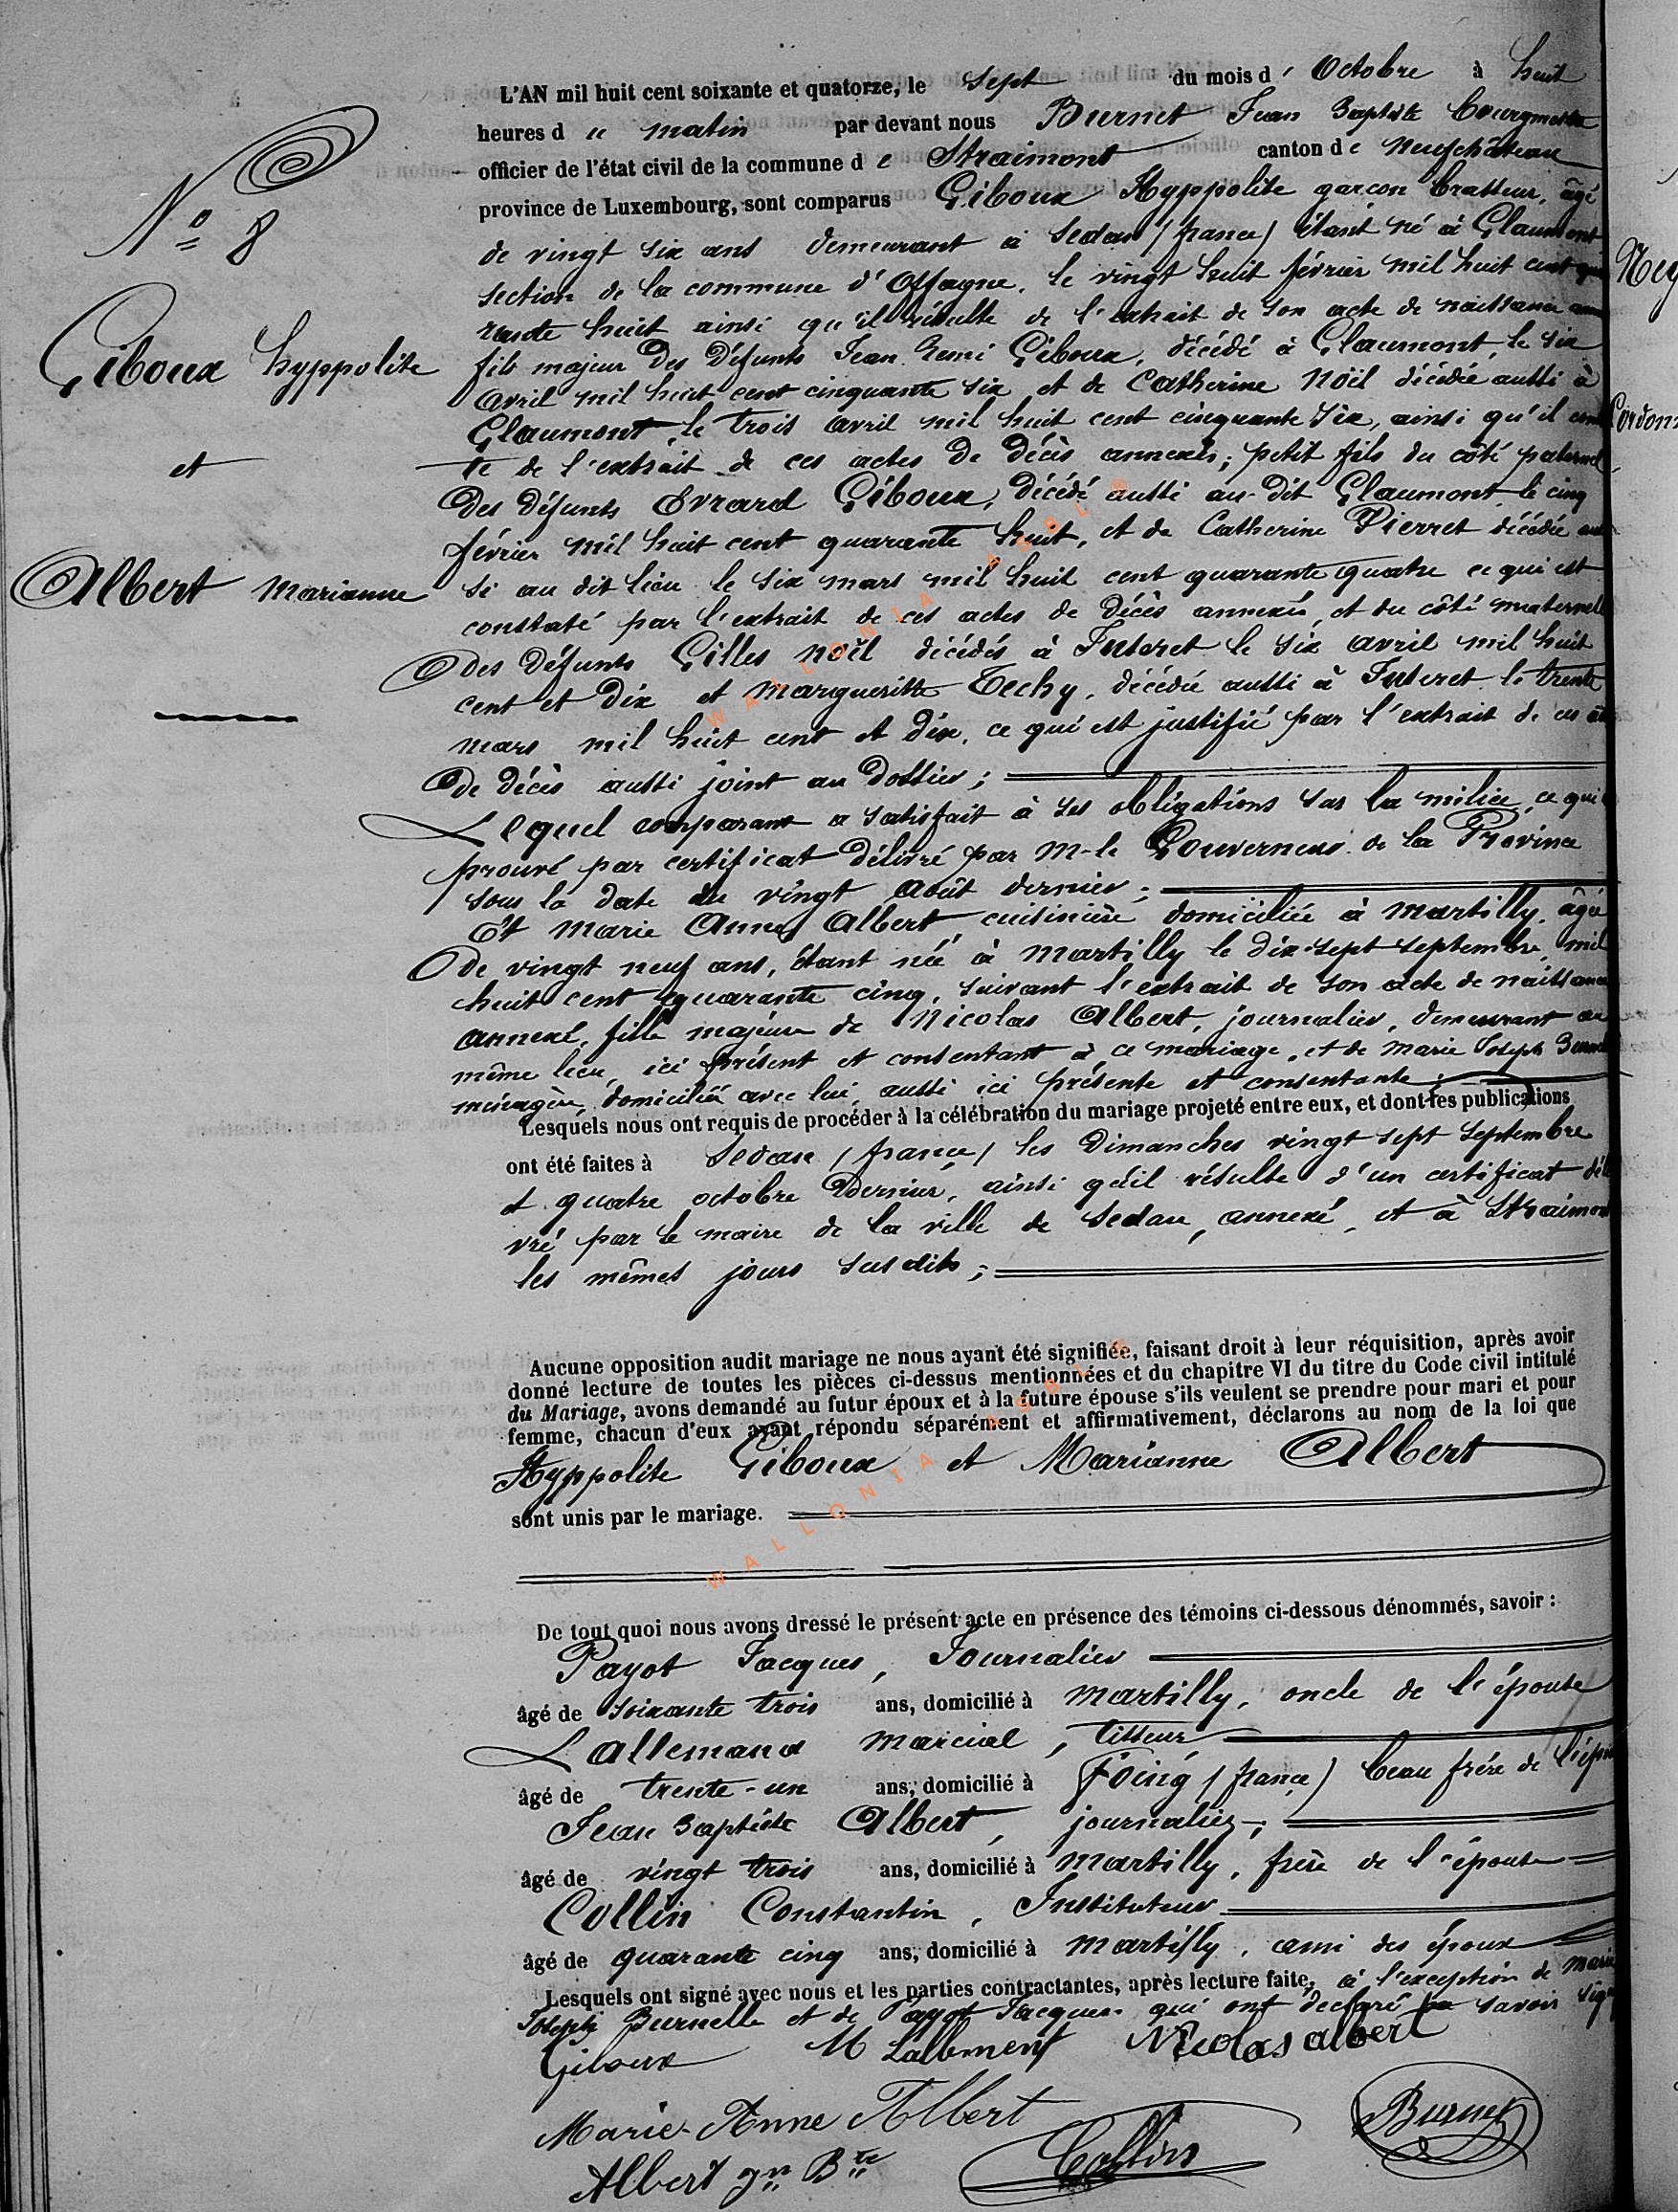 L'AN mil huit cent soixante et quatorze, le sept du mois d'Octobre à huit
heures du matin par devant nous Burnet Jean Baptiste bourgmestre
officier de l'état civil de la commune de Straimont canton de Neufchâteau
province de Luxembourg, sont comparus Giboux Hyppolite garçon brasseur, âgé
de vingt six ans demeurant à Sedan (france) étant né à Glaumont
section de la commune d'Offagne, le vingt huit février mil huit cent qua
rante huit ainsi qu'il résulte de l'extrait de son acte de naissance
fils majeur des défunts Jean Remi Giboux, décédé à Glaumont, le six
avril mil huit cent cinquante six et de Catherine Noël décédée aussi à
Glaumont, le trois avril mil huit cent cinquante six, ainsi qu'il cons
te de l'extrait de ces actes de décès annexés; petit fils du côté paternel
des défunts Evrard Giboux, décédé aussi au dit Glaumont, le cinq
février mil huit cent quarante huit, et de Catherine Pierret décédée aus
si au dit lieu le six mars mil huit cent quarante quatre ce qui est
constaté par l'extrait de ces actes de décès annexés, et du côté maternel
des défunts Gilles noël décédés à Juseret le six avril mil huit
cent et dix et Margueritte Techy, décédée aussi à Juseret le trente
mars mil huit cent et dix, ce qui est justifié par l'extrait de ces
de décès aussi joint au dossier;
Lequel comparant a satisfait à ses obligations sur la milice, ce qui
prouvé par certificat délivré par M. le Gouverneur de la Province
sous la date du vingt août dernier;
Et Marie Anne Albert, cuisinière domiciliée à Martilly, âgée
de vingt neuf ans, étant née à Martilly le dix-sept septembre mil
huit cent quarante cinq, suivant l'extrait de son acte de naissance
annexé, fille majeure de Nicolas Albert, journalier, demeurant au
même lieu, ici présent et consentant à ce mariage, et de Marie Joseph
ménagère, domiciliée avec lui, aussi ici présente et consentante;
Lesquels nous ont requis de procéder à la célébration du mariage projeté entre eux, et dont les publications
ont été faites à Sedan (france) les dimanches vingt sept septembre
et quatre octobre dernier, ainsi qu'il résulte d'un certificat déli
vré par le maire de la ville de Sedan, annexé, et à Straimont
les mêmes jours susdits;
N° 8
Giboux hyppolite
et
Albert Marianne
Aucune opposition audit mariage ne nous ayant été signifiée, faisant droit à leur réquisition, après avoir
donné lecture de toutes les pièces ci-dessus mentionnées et du chapitre VI du titre du Code civil intitulé
du Mariage, avons demandé au futur époux et à la future épouse s'ils veulent se prendre pour mari et pour
femme, chacun d'eux ayant répondu séparément et affirmativement, déclarons au nom de la loi que
Hyppolite Giboux et Marianne Albert
sont unis par le mariage.
De tout quoi nous avons dressé le présent acte en présence des témoins ci-dessous dénommés, savoir :
Payot Jacques, Journalier
âgé de soixante trois ans, domicilié à Martilly, oncle de l'épouse
Lallemand Marcial, tisseur
âgé de trente-un ans, domicilié à (france) beau frère de
Jean Baptiste Albert, journalier,
âgé de vingt trois ans, domicilié à Martilly, frère de l'épouse
Collin Constantin, Instituteur
âgé de quarante cinq ans, domicilié à Martilly, ami des époux
Lesquels ont signé avec nous et les parties contractantes, après lecture faite, à l'exception de Marie
Joseph Burnelle et de Payot Jacques qui ont déclaré ne savoir signer
Giboux M Lallement Nicolas albert
Marie-Anne Albert
Albert Jn Bte Collin Burnet
WALLONIA ASBL ©
WALLONIA ASBL ©